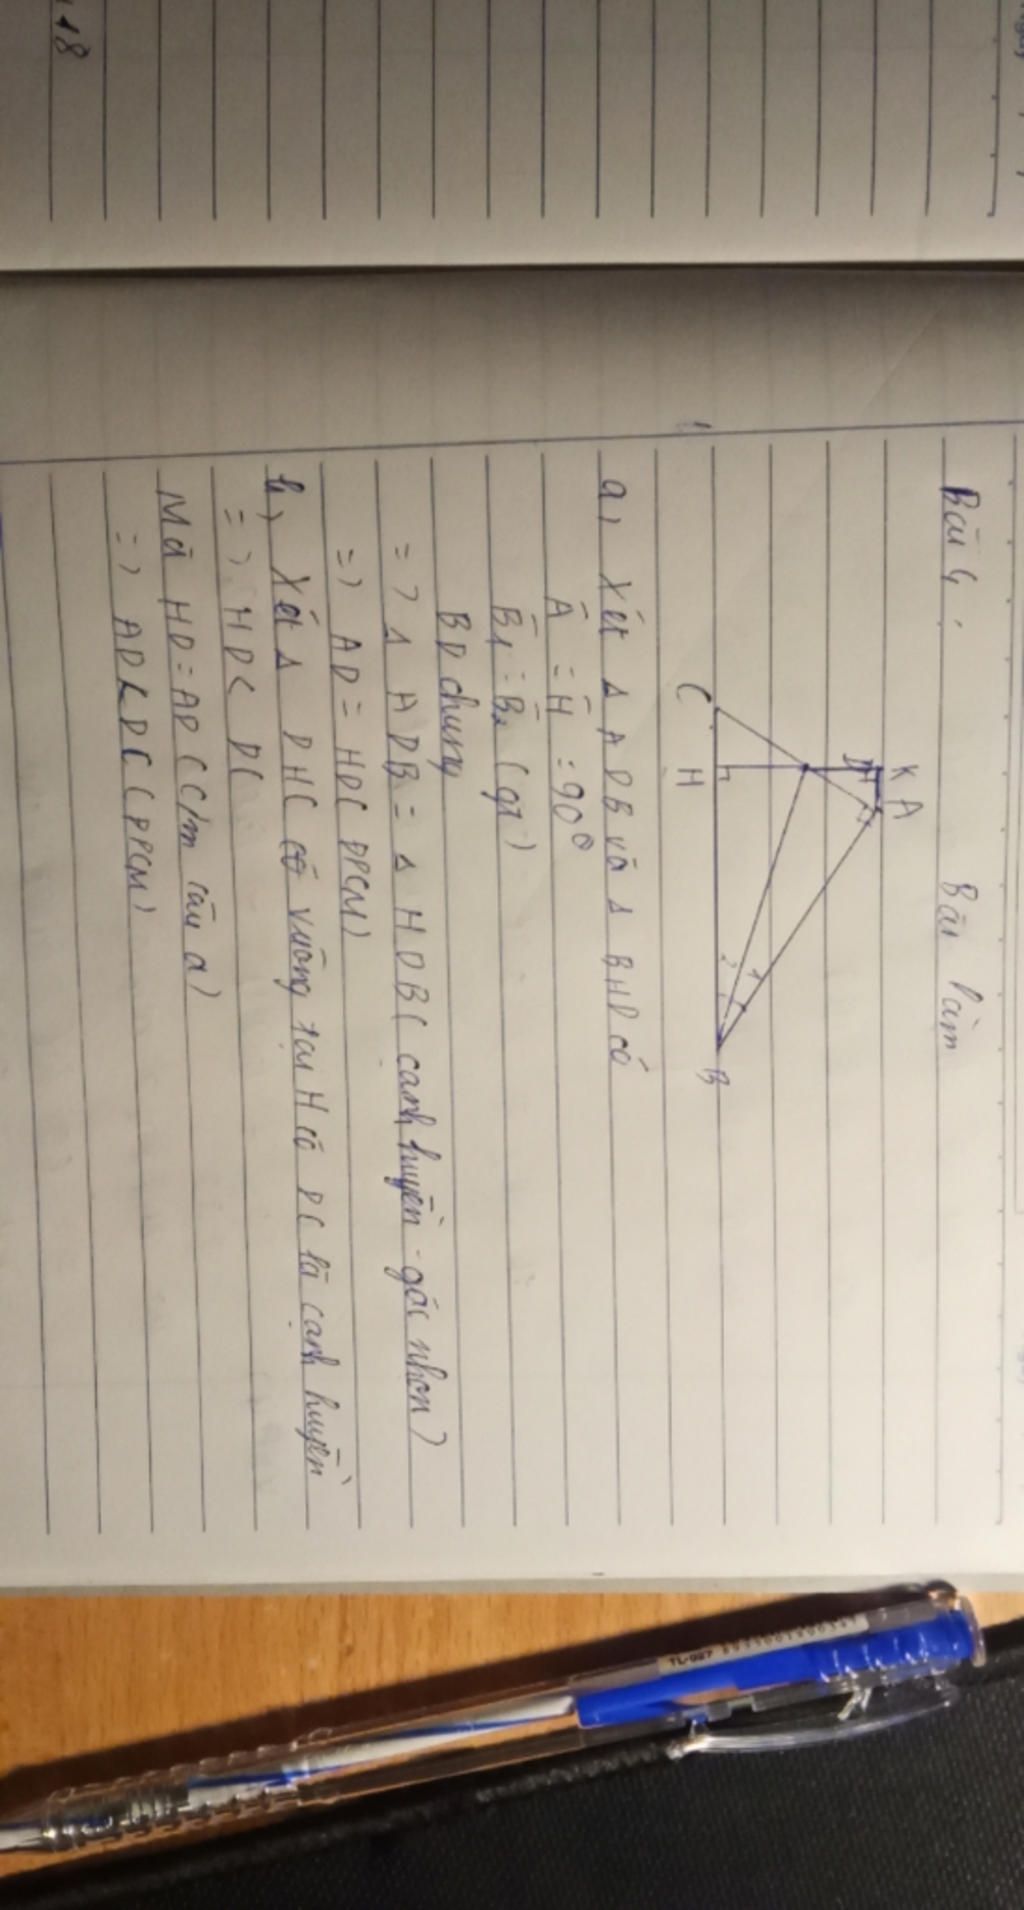 Bài 4:
Bài làm
K A
D
C H B
1
2
a) Xét Δ ADB và Δ BHD có
Â = Ĥ = 90°
B̂1 = B̂2 (gt)
BD chung
=> Δ ADB = Δ HDB (cạnh huyền - góc nhọn)
=> AD = HD( ĐPCM)
b) Xét Δ DHC vuông tại H có DC là cạnh huyền
=> HD < DC
Mà HD = AD (c/m câu a)
=> AD < DC (ĐPCM)
18
TL-027